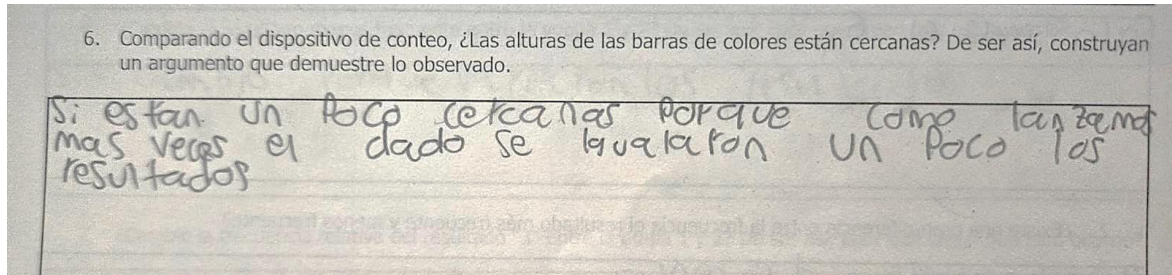 6. Comparando el dispositivo de conteo, ¿Las alturas de las barras de colores están cercanas? De ser así, construyan
un argumento que demuestre lo observado.
Si estan un Poco cercanas Porque como lanzamos
mas veces el dado se igualaron un Poco los
resultados